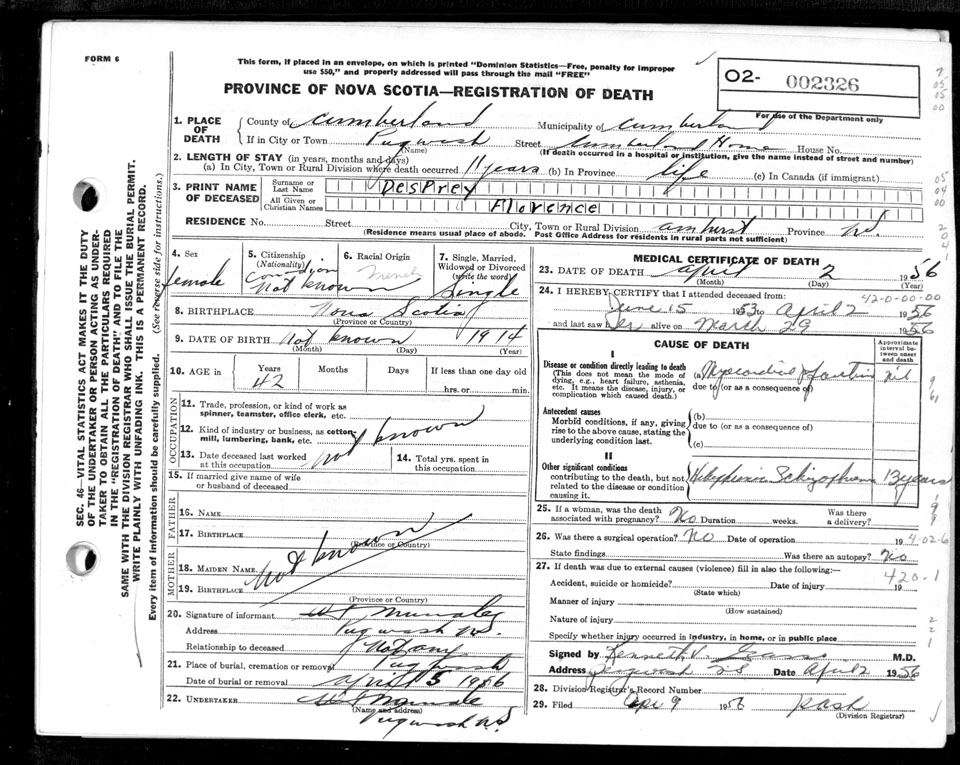 FORM 6
This form, if placed in an envelope, on which is printed "Dominion Statistics—Free, penalty for improper
use $50," and properly addressed will pass through the mail "FREE"
PROVINCE OF NOVA SCOTIA—REGISTRATION OF DEATH
O2- 002326
For use of the Department only
1. PLACE OF DEATH
County of Cumberland Municipality of Cumberland
If in City or Town Pugwash Street Cumberland Home House No.
(Name) (If death occurred in a hospital or institution, give the name instead of street and number)
2. LENGTH OF STAY (in years, months and days)
(a) In City, Town or Rural Division where death occurred 11 years (b) In Province life (c) In Canada (if immigrant)
3. PRINT NAME OF DECEASED
Surname or Last Name DesPrey
All Given or Christian Names Florence
RESIDENCE No. Street City, Town or Rural Division Amherst Province N.S.
(Residence means usual place of abode. Post Office Address for residents in rural parts not sufficient)
4. Sex female
5. Citizenship (Nationality) Canadian
Not known
6. Racial Origin French
7. Single, Married, Widowed or Divorced (write the word) Single
8. BIRTHPLACE Nova Scotia
(Province or Country)
9. DATE OF BIRTH Not known 1914
(Month) (Day) (Year)
10. AGE in Years Months Days If less than one day old
42 hrs. or min.
OCCUPATION
11. Trade, profession, or kind of work as
spinner, teamster, office clerk, etc.
12. Kind of industry or business, as cotton-
mill, lumbering, bank, etc.
Not known
13. Date deceased last worked
at this occupation
14. Total yrs. spent in
this occupation
15. If married give name of wife
or husband of deceased
FATHER
16. NAME
17. BIRTHPLACE
(Province or Country)
Not known
MOTHER
18. MAIDEN NAME
19. BIRTHPLACE
(Province or Country)
20. Signature of informant
Address Pugwash N.S.
Relationship to deceased Not any
21. Place of burial, cremation or removal Pugwash
Date of burial or removal April 5 1956
22. UNDERTAKER
(Name and address)
Pugwash N.S.
MEDICAL CERTIFICATE OF DEATH
23. DATE OF DEATH April 2 1956
(Month) (Day) (Year)
24. I HEREBY CERTIFY that I attended deceased from: 42-0-00-00
June 15 1953 to April 2 1956
and last saw her alive on March 29 1956
CAUSE OF DEATH
Approximate interval between onset and death
I
Disease or condition directly leading to death
(This does not mean the mode of
dying, e.g., heart failure, asthenia,
etc. It means the disease, injury, or
complication which caused death.)
(a) Myocardial Infarction nil
due to (or as a consequence of)
Antecedent causes
Morbid conditions, if any, giving
rise to the above cause, stating the
underlying condition last.
(b)
due to (or as a consequence of)
(c)
II
Other significant conditions
contributing to the death, but not
related to the disease or condition
causing it.
Hebephrenic Schizophrenia 13 years
25. If a woman, was the death
associated with pregnancy? No Duration weeks. Was there
a delivery?
26. Was there a surgical operation? No Date of operation 19
4-02-6
State findings Was there an autopsy? No
27. If death was due to external causes (violence) fill in also the following:—
420-1
Accident, suicide or homicide? Date of injury 19
(State which)
Manner of injury
(How sustained)
Nature of injury
Specify whether injury occurred in industry, in home, or in public place
Signed by Kenneth V. M.D.
Address Pugwash NS Date April 2 1956
28. Division Registrar's Record Number
29. Filed Apr 9 1956
(Division Registrar)
SEC. 46—VITAL STATISTICS ACT MAKES IT THE DUTY
OF THE UNDERTAKER OR PERSON ACTING AS UNDER-
TAKER TO OBTAIN ALL THE PARTICULARS REQUIRED
IN THE "REGISTRATION OF DEATH" AND TO FILE THE
SAME WITH THE DIVISION REGISTRAR WHO SHALL ISSUE THE BURIAL PERMIT.
WRITE PLAINLY WITH UNFADING INK. THIS IS A PERMANENT RECORD.
Every item of information should be carefully supplied. (See reverse side for instructions.)